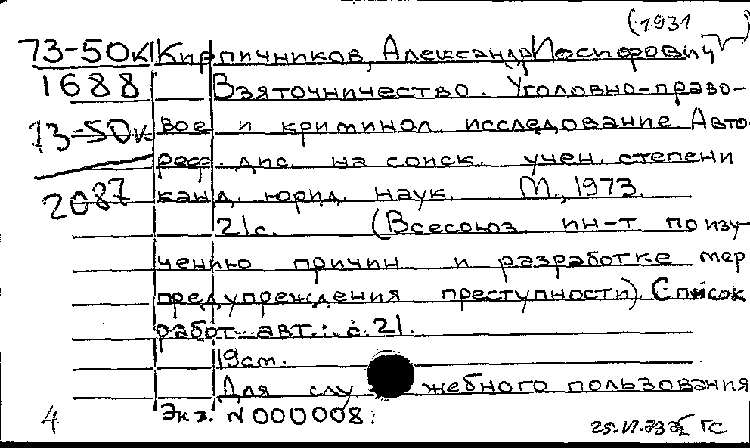 (1931
73-50к Кирпичников, Александр Иосифович
1688 Взяточничество. Уголовно-право-
73-50к вое и криминол. исследование Авто-
реф. дис. на соиск. учен. степени
2087 канд. юрид. наук. М., 1973.
21с. (Всесоюз. ин-т по изу-
чению причин и разработке мер
предупреждения преступности). Список
работ авт.: с. 21.
19см.
Для служебного пользования
4 Экз. N 000008.